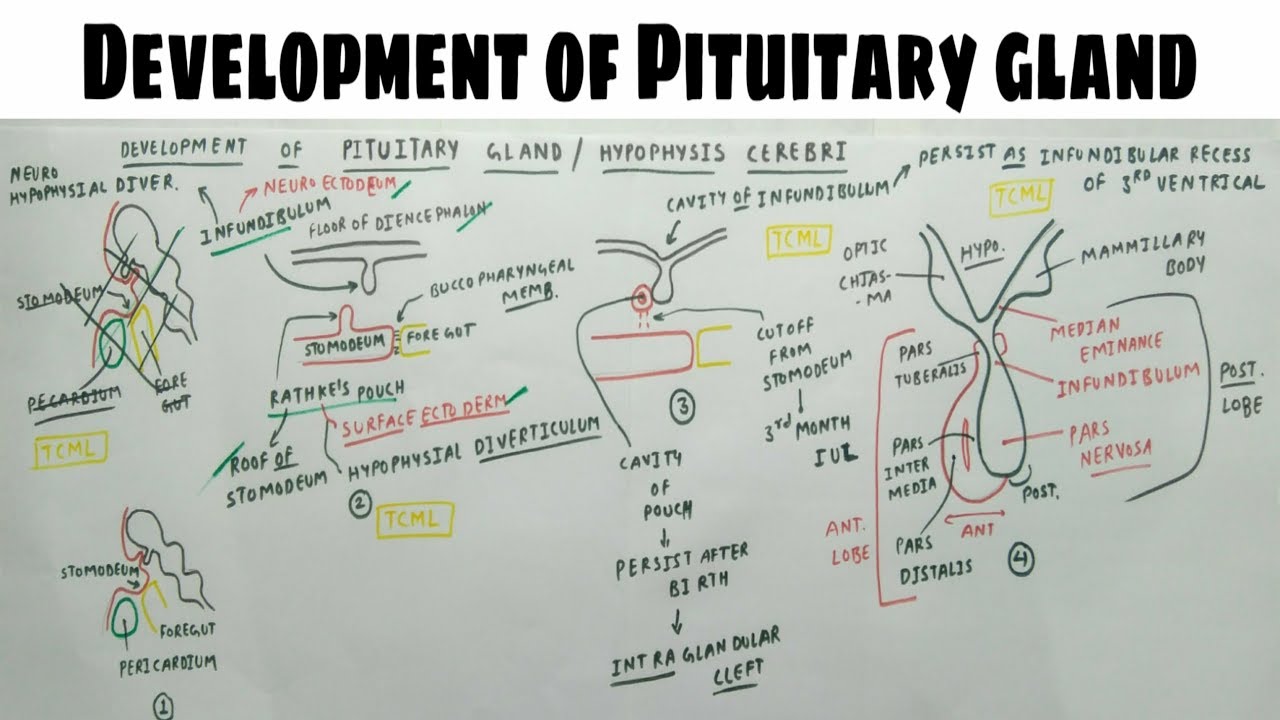 Development of Pituitary gland
DEVELOPMENT OF PITUITARY GLAND / HYPOPHYSIS CEREBRI
NEURO
HYPOPHYSIAL DIVER.
STOMODEUM
PECARDIUM
FORE
GUT
TCML
STOMODEUM
FOREGUT
PERICARDIUM
1
NEURO ECTODEUM
INFUNDIBULUM
FLOOR OF DIENCEPHALON
BUCCOPHARYNGEAL
MEMB.
STOMODEUM
FOREGUT
RATHKE'S POUCH
SURFACE ECTODERM
ROOF OF
STOMODEUM
HYPOPHYSIAL DIVERTICULUM
2
TCML
CAVITY OF INFUNDIBULUM
PERSIST AS INFUNDIBULAR RECESS
OF 3RD VENTRICAL
TCML
CUTOFF
FROM
STOMODEUM
3rd MONTH
IUL
3
CAVITY
OF
POUCH
PERSIST AFTER
BIRTH
INTRAGLANDULAR
CLEFT
TCML
OPTIC
CHIAS-
-MA
HYPO.
MAMMILLARY
BODY
MEDIAN
EMINANCE
INFUNDIBULUM
PARS
NERVOSA
POST.
LOBE
PARS
TUBERALIS
PARS
INTER
MEDIA
POST.
ANT
ANT.
LOBE
PARS
DISTALIS
4